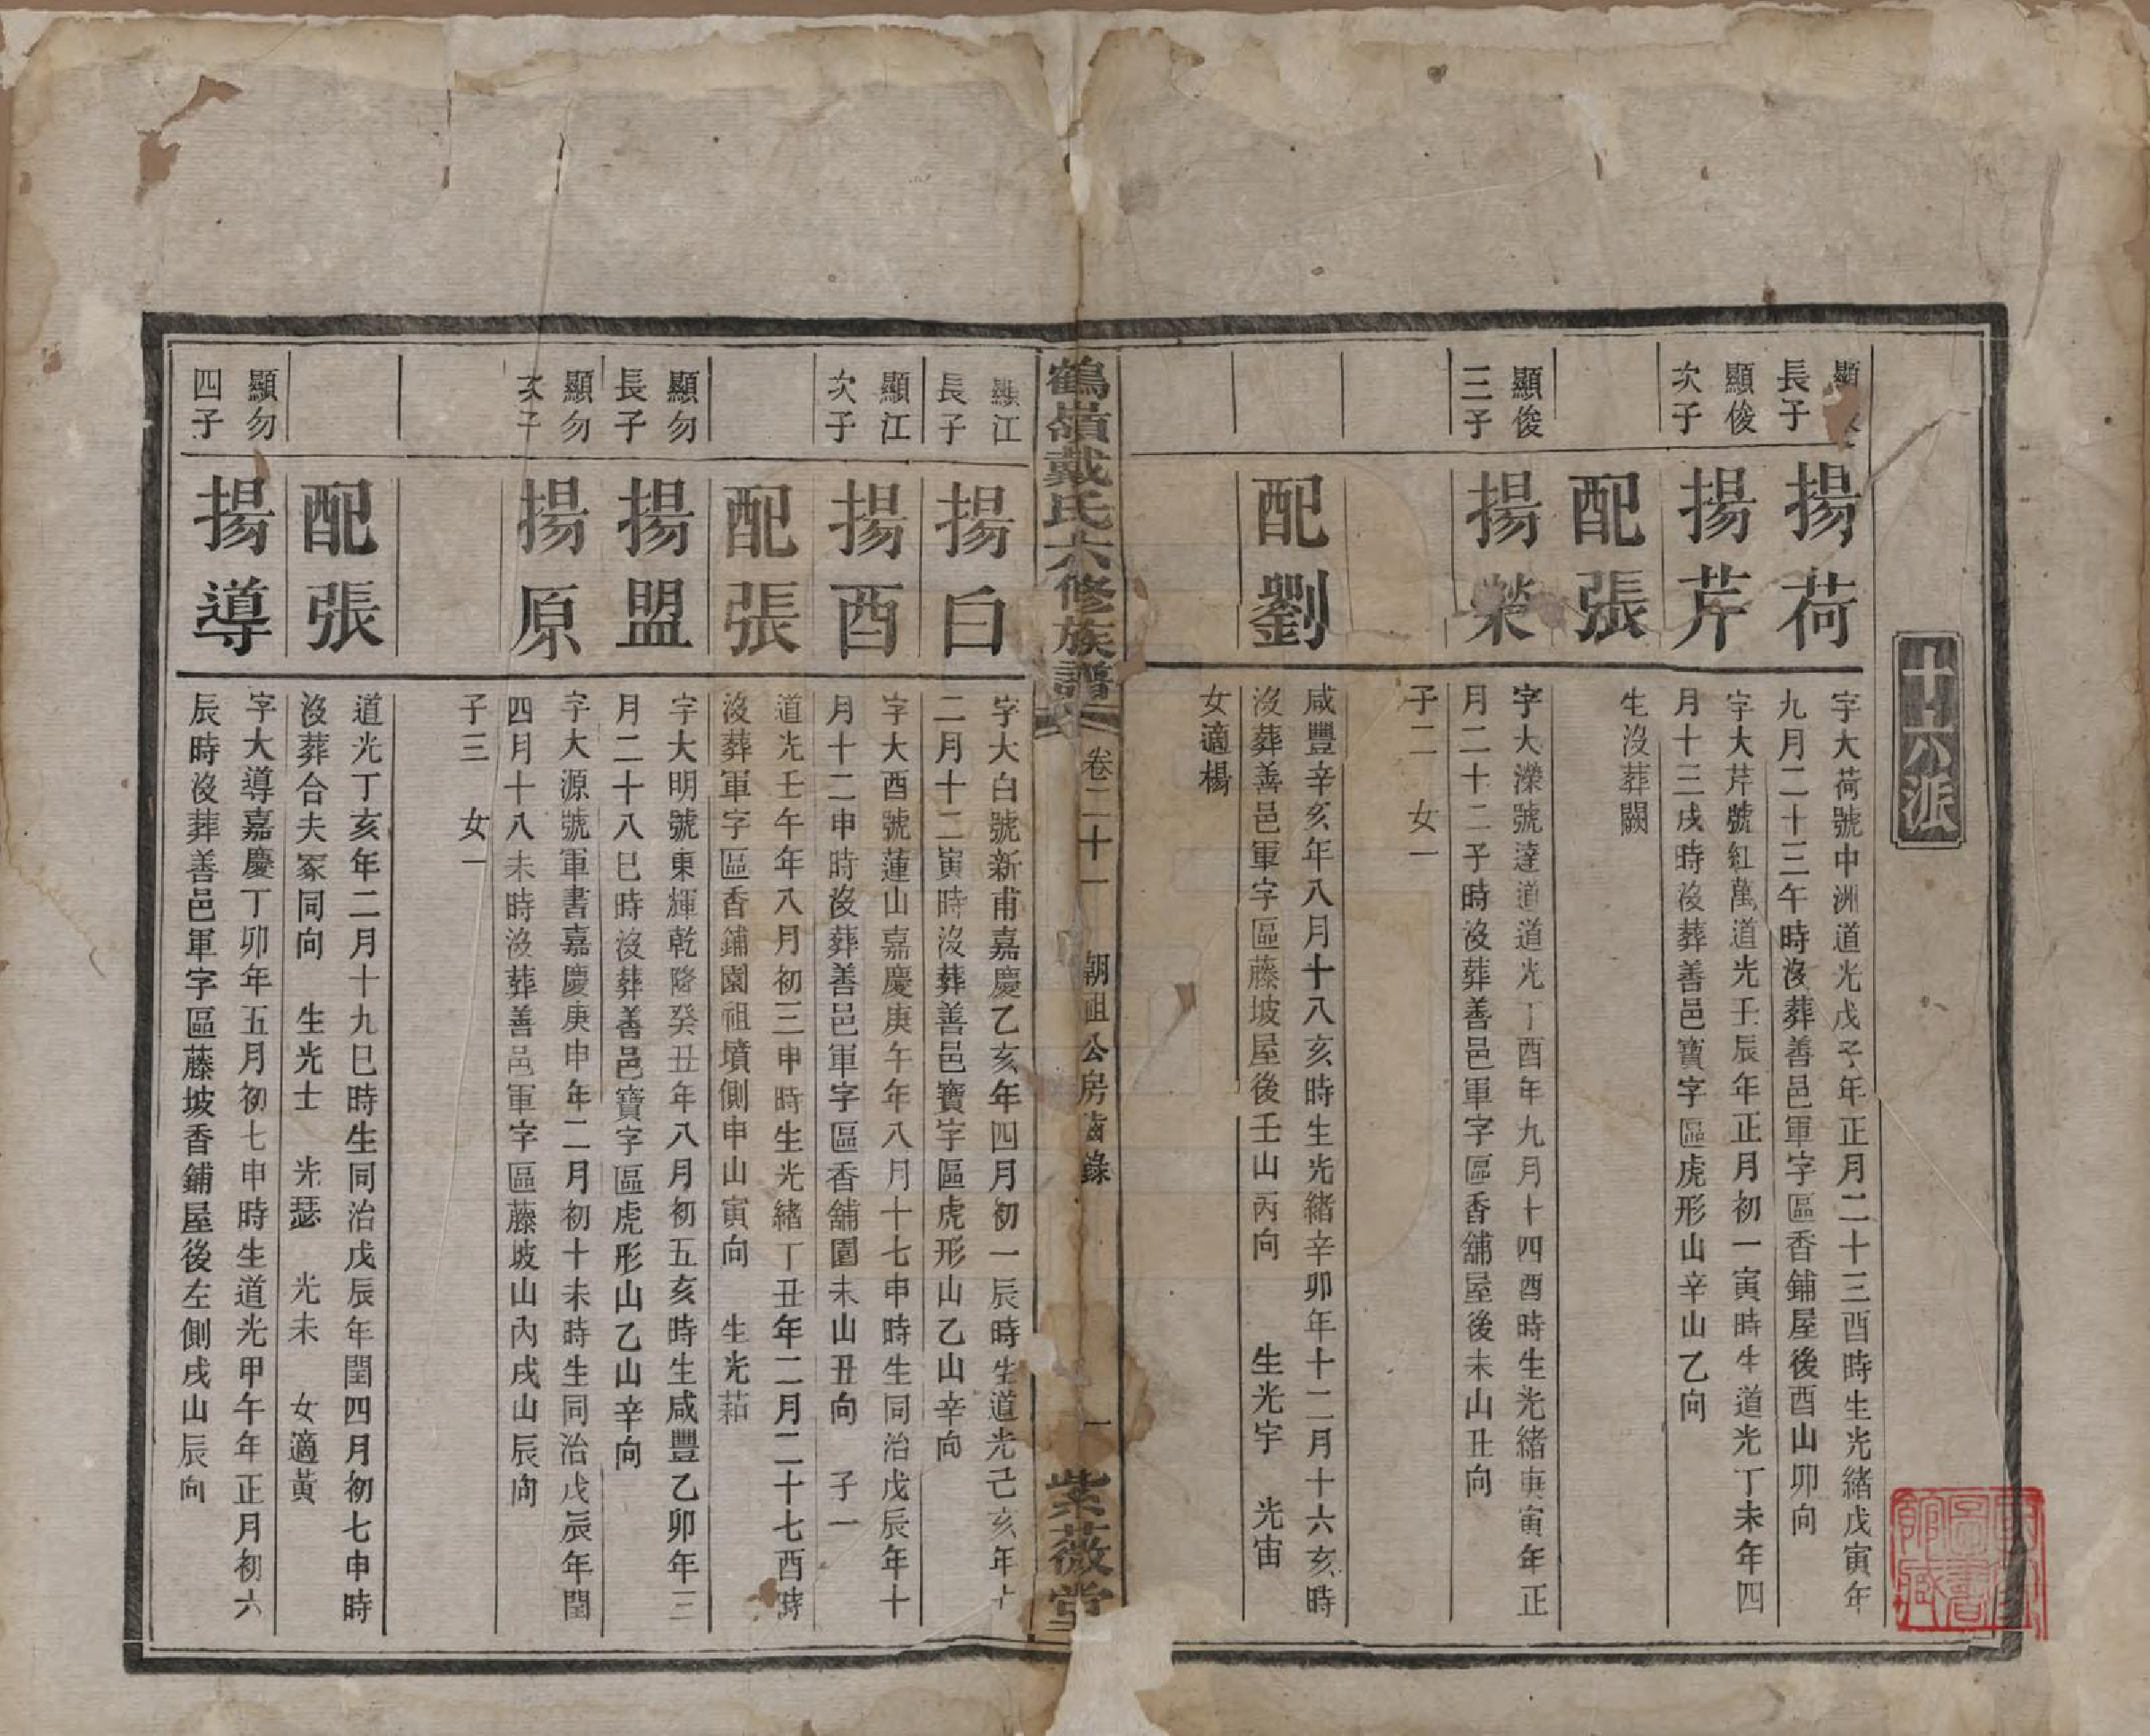 十六派
長子
揚荷
字大荷號中洲道光戊子年正月二十三酉時生光緒戊寅年
九月二十三午時沒葬善邑軍字區香鋪屋後酉山卯向
顯俊
次子
揚芹
字大芹號紅萬道光壬辰年正月初一寅時生道光丁未年四
月十三戌時沒葬善邑寶字區虎形山辛山乙向
配張
生沒葬闕
顯俊
三子
揚榮
字大濚號達道道光丁酉年九月十四酉時生光緒庚寅年正
月二十二子時沒葬善邑軍字區香舖屋後未山丑向
子二 女一
配劉
咸豐辛亥年八月十八亥時生光緒辛卯年十二月十六亥時
沒葬善邑軍字區藤坡屋後壬山丙向 生光宇 光宙
女適楊
鶴嶺戴氏六修族譜
卷二十一
朝祖公房齒錄
一
紫薇堂
顯江
長子
揚白
字大白號新甫嘉慶乙亥年四月初一辰時生道光己亥年十
二月十二寅時沒葬善邑寶字區虎形山乙山辛向
顯江
次子
揚酉
字大酉號蓮山嘉慶庚午年八月十七申時生同治戊辰年十
月十二申時沒葬善邑軍字區香舖園未山丑向 子一
配張
道光壬午年八月初三申時生光緒丁丑年二月二十七酉時
沒葬軍字區香鋪園祖墳側申山寅向 生光萂
顯勿
長子
揚盟
字大明號東輝乾隆癸丑年八月初五亥時生咸豐乙卯年三
月二十八巳時沒葬善邑寶字區虎形山乙山辛向
顯勿
次子
揚原
字大源號軍書嘉慶庚申年二月初十未時生同治戊辰年閏
四月十八未時沒葬善邑軍字區藤坡山內戌山辰向
子三 女一
配張
道光丁亥年二月十九巳時生同治戊辰年閏四月初七申時
沒葬合夫冢同向 生光士 光瑟 光未 女適黃
顯勿
四子
揚導
字大導嘉慶丁卯年五月初七申時生道光甲午年正月初六
辰時沒葬善邑軍字區藤坡香鋪屋後左側戌山辰向